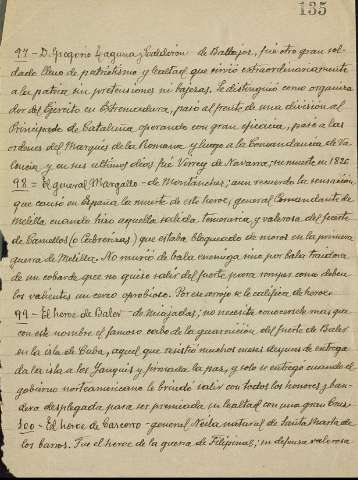 135
97 - D. Gregorio Laguna y Calderón - de Badajoz, fué otro gran sol-
dado lleno de patriotismo y lealtad que sirvió extraordinariamente
a la patria sin pretensiones ni bajezas. Se distinguió como organiza
dor del Ejército en Extremadura, pasó al frente de una división al
Principado de Cataluña operando con gran eficacia, pasó a las
ordenes del Marqués de la Romana y luego a la Comandancia de Va
lencia y en sus ultimos dias fué Virrey de Navarra; su muerte en 1826
98 - El general Margallo - de Montánchez; aun recuerdo la sensación
que causó en España la muerte de este heroe, general Comandante de
Melilla cuando hizo aquella salida temeraria y valerosa del fuerte
de Camellos (o Cabrerizas) que estaba bloqueado de moros en la primera
guerra de Melilla. No murió de bala enemiga sino por bala traidora
de un cobarde que no quiso salir del fuerte para romper como deben
los valientes un cerco oprobioso. Por su arrojo se le califica de heroe.
99 - El heroe de Baler - de Miajadas; no necesita conocersele mas que
con este nombre el famoso cabo de la guarnición del fuerte de Baler
en la isla de Cuba, aquel que resistió muchos meses despues de entrega
da la isla a los Yanquis y firmada la paz, y solo se entregó cuando el
gobierno norteamericano le brindó salir con todos los honores y ban-
dera desplegada para ser premiada su lealtad con una gran Cruz
100 - El heroe de Cascorro - general Neila natural de Santa Marta de
los barros. Fué el heroe de la guerra de Filipinas; su defensa valerosa